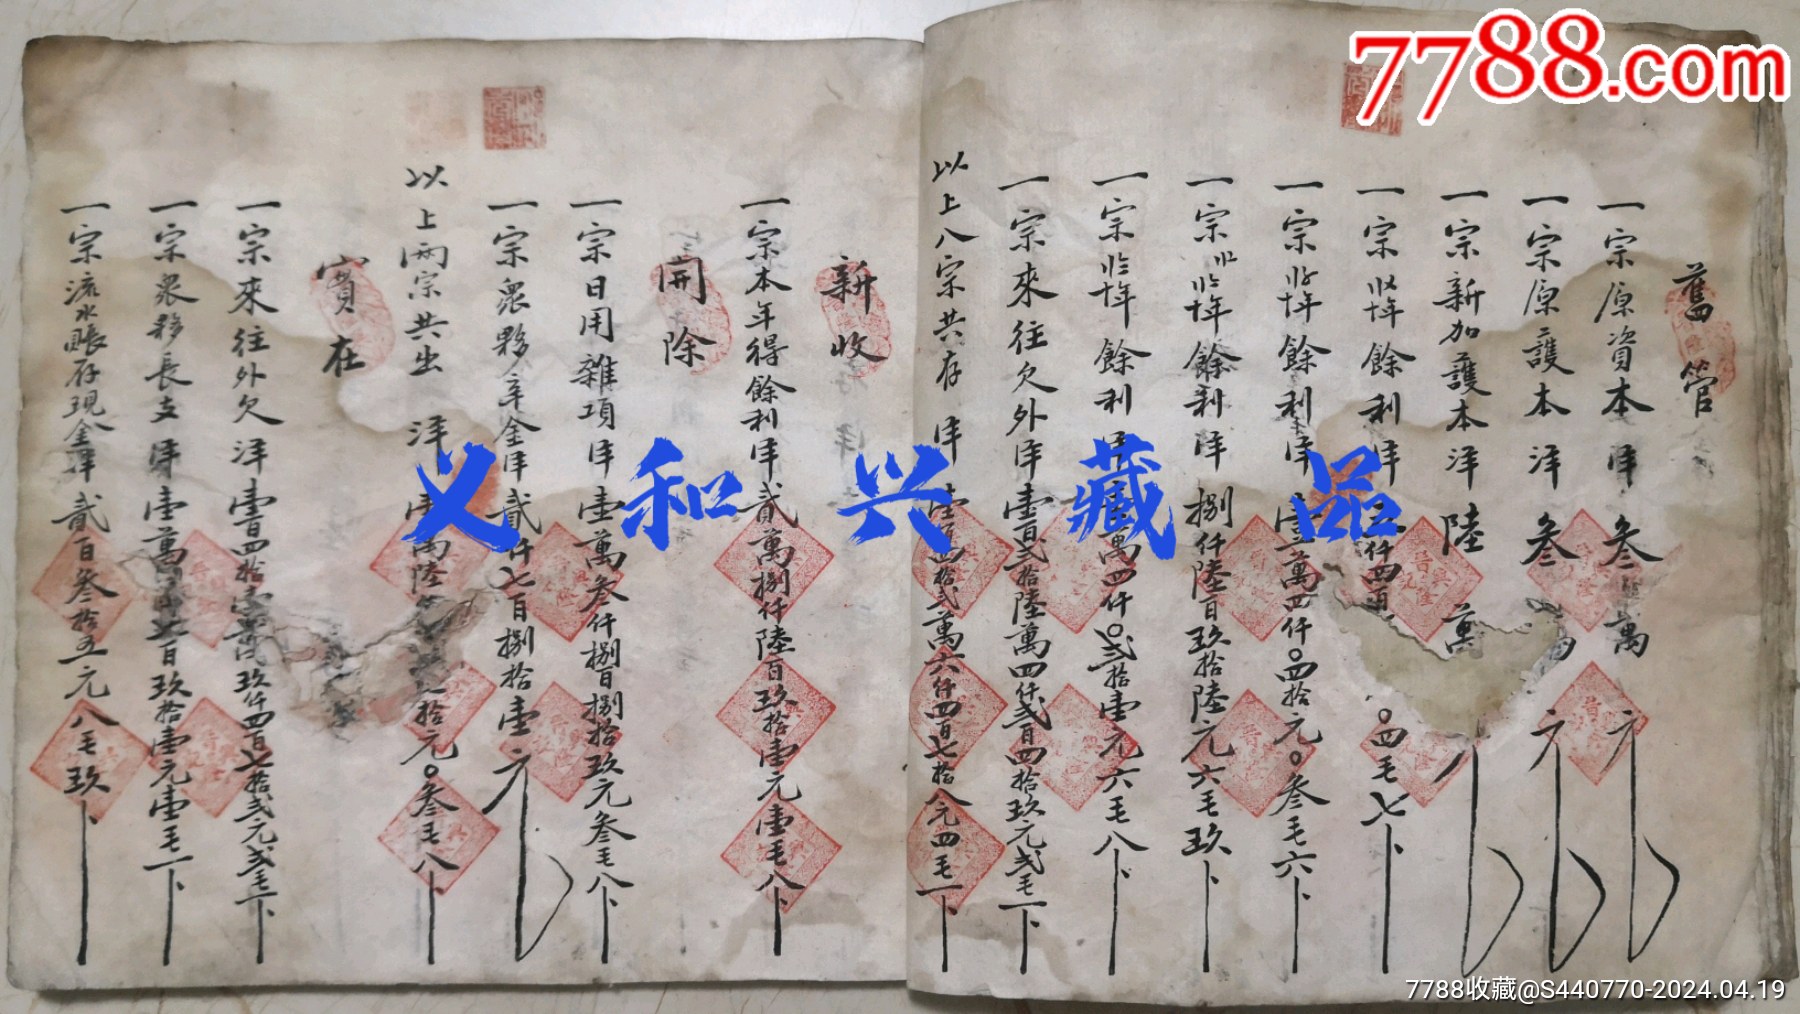 7788.com
舊管
一宗原資本洋叁萬元
一宗原護本洋叁 元
一宗新加護本洋陸萬
一宗 年餘利洋 仟四百 〇四毛七卜
一宗 年餘利洋壹萬四仟〇四拾元〇叁毛六卜
一宗 年餘利洋捌仟陸百玖拾陸元六毛玖卜
一宗 年餘利洋 萬四仟〇弍拾壹元六毛八卜
一宗來往欠外洋壹百弍拾陸萬四仟弍百四拾玖元弍毛一卜
以上八宗共存洋壹百四拾弍萬六仟四百七拾八元四毛一卜
新收
一宗本年得餘利洋貳萬捌仟陸百玖拾壹元壹毛八卜
開除
一宗日用雜項洋壹萬叁仟捌百捌拾玖元叁毛八卜
一宗眾夥辛金洋貳仟七百捌拾壹元
以上兩宗共出洋 萬陸 拾元〇叁毛八卜
實在
一宗來往外欠洋壹百四拾 萬玖仟四百七拾弍元弍毛一卜
一宗眾夥長支洋壹萬 百玖拾壹元壹毛一卜
一宗流水賬存現金洋貳百叁拾五元八毛玖卜
义和兴藏品
7788收藏@S440770-2024.04.19